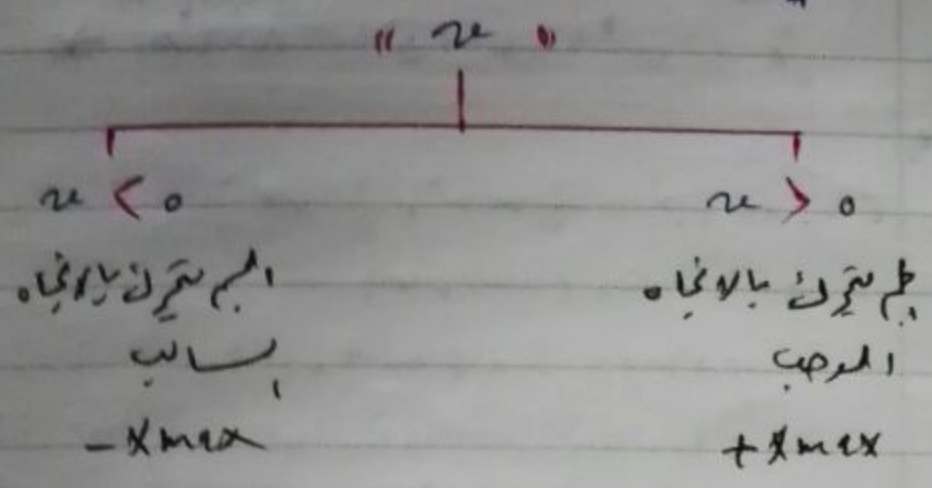 " v "
v > 0
الجسم يتحرك بالاتجاه
الموجب
+ Xmax
v < 0
الجسم يتحرك بالاتجاه
السالب
- Xmax